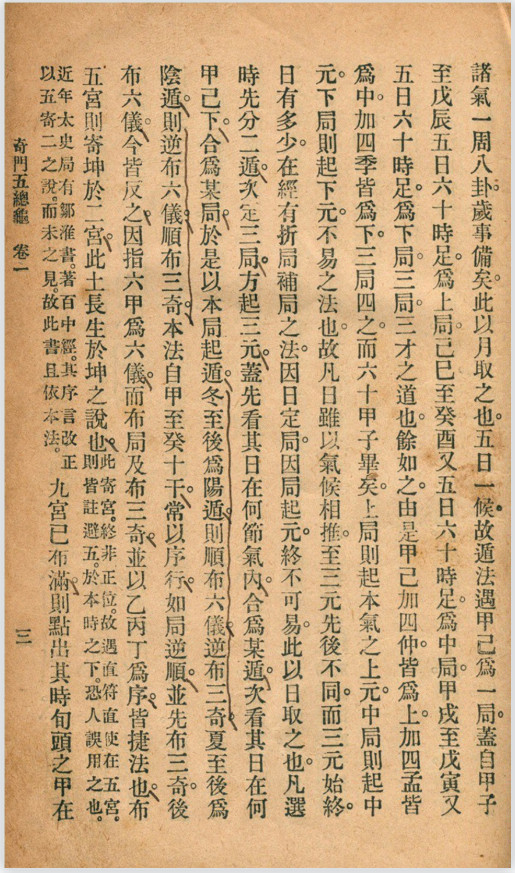 諸氣一周八卦。歲事備矣。此以月取之也。五日一候。故遁法遇甲己爲一局。蓋自甲子
至戊辰五日六十時足。爲上局。己巳至癸酉又五日六十時足。爲中局。甲戌至戊寅又
五日六十時足。爲下局。三局三才之道也。餘如之。由是甲己加四仲。皆爲上。加四孟皆
爲中。加四季皆爲下。三局四之。而六十甲子畢矣。上局則起本氣之上元。中局則起中
元。下局則起下元。不易之法也。故凡日雖以氣候相推。至三元先後不同。而三元始終。
日有多少。在經有折局補局之法。因日定局。因局起元。終不可易。此以日取之也。凡選
時先分二遁。次定三局。方起三元。蓋先看其日在何節氣內。合爲某遁。次看其日在何
甲己下。合爲某局。於是以本局起遁。冬至後爲陽遁。則順布六儀。逆布三奇。夏至後爲
陰遁。則逆布六儀。順布三奇。本法自甲至癸十干。常以序行。如局逆順。並先布三奇。後
布六儀。今皆反之。因指六甲爲六儀。而布局及布三奇。並以乙丙丁爲序。皆捷法也。布
五宮則寄坤於二宮。此土長生於坤之說也。此寄宮。終非正位。故遇直符直使在五宮。
則皆註避五。於本時之下。恐人誤用之也。
近年太史局有鄒淮書。著百中經。其序言改正
以五寄二之說。而未之見。故此書且依本法。
九宮已布滿。則點出其時旬頭之甲在
奇門五總龜　卷一
三